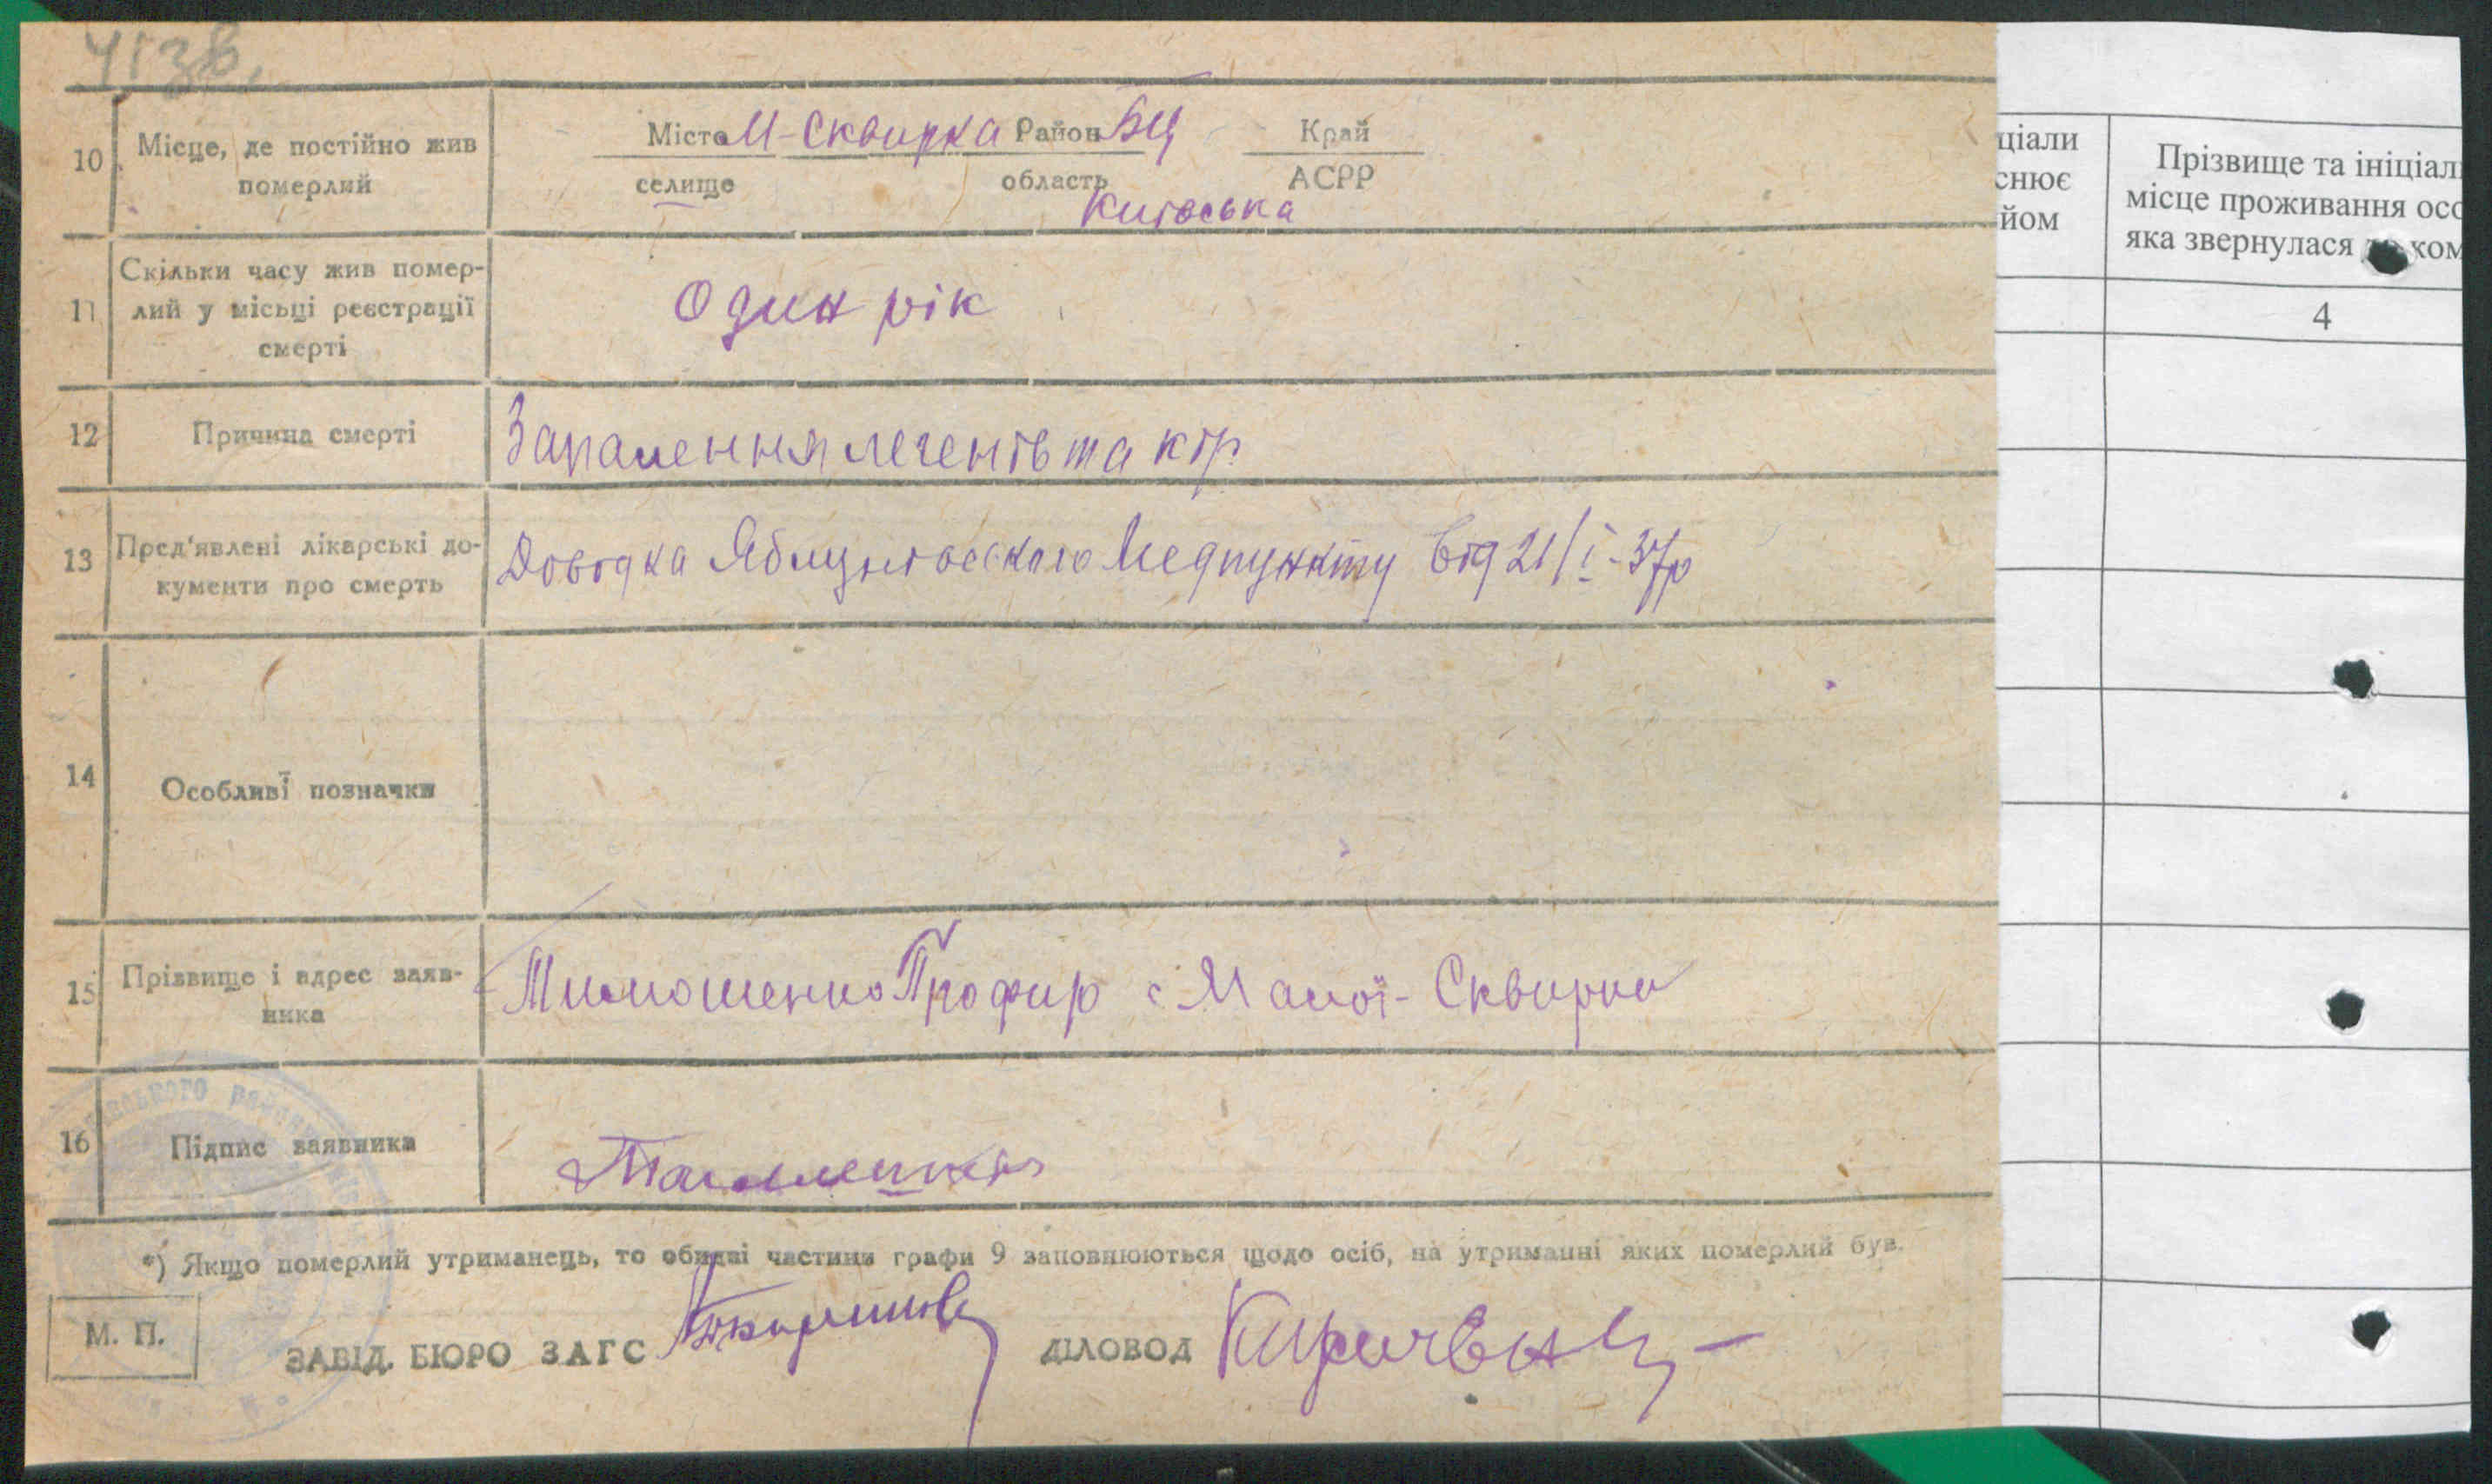 413в.
10 Місце, де постійно жив померлий
Місто М-Сквирка Район БЦ Край
селище область АСРР
Київська
11 Скільки часу жив помер-
лий у місьці реєстрації
смерті
Один рік
12 Причина смерті
Запалення легенів та кір
13 Пред'явлені лікарські до-
кументи про смерть
Довідка Яблунівського Медпункту від 21/I-37р
14 Особливі позначки
15 Прізвище і адрес заяв-
ника
Тимошенко Профир с Малої-Сквирки
16 Підпис заявника
*) Якщо померлий утриманець, то обидві частини графи 9 заповнюються щодо осіб, на утриманні яких померлий був.
М. П.
ЗАВІД. БЮРО ЗАГС
ДІЛОВОД
ціали
снює
йом
Прізвище та ініціал
місце проживання осо
яка звернулася до ком
4